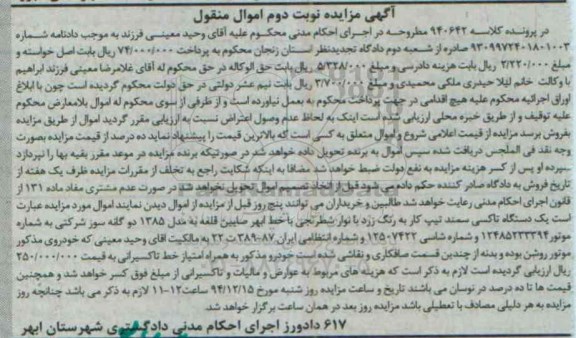 آگهی مزایده نوبت دوم اموال منقول
در پرونده کلاسه ۹۴۰۶۴۲ مطروحه در اجرای احکام مدنی محکوم علیه آقای وحید معینی فرزند به موجب دادنامه شماره
۹۳۰۹۹۷۲۴۰۱۸۰۱۰۰۳ صادره از شعبه دوم دادگاه تجدیدنظر استان زنجان محکوم به پرداخت ۷۴/۰۰۰/۰۰۰ ریال بابت اصل خواسته و
مبلغ ۳/۲۲۰/۰۰۰ ریال بابت هزینه دادرسی و مبلغ ۵/۳۲۸/۰۰۰ ریال بابت حق الوکاله در حق محکوم له آقای غلامرضا معینی فرزند ابراهیم
با وکالت خانم لیلا حیدری ملکی محمیدی و مبلغ ۳/۷۰۰/۰۰۰ ریال بابت نیم عشر دولتی در حق دولت محکوم گردیده است چون با ابلاغ
اوراق اجرائیه محکوم علیه هیچ اقدامی در جهت پرداخت محکوم به بعمل نیاورده است و از طرفی از سوی محکوم له اموال بلامعارض محکوم
علیه توقیف و از طریق خبره محلی ارزیابی شده است اینک به لحاظ عدم وصول اعتراض نسبت به ارزیابی مقرر گردید اموال از طریق مزایده
بفروش برسد مزایده از قیمت اعلامی شروع و اموال متعلق به کسی است که بالاترین قیمت را پیشنهاد نماید ده درصد از قیمت مزایده بصورت
وجه نقد فی المجلس دریافت شده سپس اموال به برنده تحویل داده خواهد شد در صورتیکه برنده مزایده در موعد مقرر بقیه بها را نپردازد
سپرده او پس از کسر هزینه مزایده به نفع دولت ضبط خواهد شد مضافا به اینکه شکایت راجع به تخلف از مقررات مزایده ظرف یک هفته از
تاریخ فروش به دادگاه صادر کننده حکم داده می شود قبل از اتخاذ تصمیم اموال تحویل نخواهد شد در صورت عدم مشتری مفاد ماده ۱۳۱ از
قانون اجرای احکام مدنی رعایت خواهد شد طالبین و خریداران می توانند پنج روز قبل از مزایده از اموال دیدن نمایند اموال مورد مزایده عبارت
است یک دستگاه تاکسی سمند تیپ کار به رنگ زرد با نوار شطرنجی با خط ابهر صایین قلعه به مدل ۱۳۸۵ دو گانه سوز شرکتی به شماره
موتور ۱۲۴۸۵۲۳۳۳۹۴ و شماره شاسی ۱۲۵۰۷۴۲۲ و شماره انتظامی ایران ۸۷-۳۸۹ ت ۲۲ به مالکیت اقای وحید معینی که خودروی مذکور
موتور روشن بوده و بدنه از چندین قسمت صافکاری و نقاشی شده است خودرو مذکور به همراه امتیاز خط تاکسیرانی به قیمت ۲۵۰/۰۰۰/۰۰۰
ریال ارزیابی گردیده است لازم به ذکر است که هزینه های مربوط به عوارض و مالیات و تاکسیرانی از مبلغ فوق کسر خواهد شد و همچنین
قیمت ها تا ده درصد در نوسان می باشند تاریخ و ساعت مزایده روز شنبه مورخ ۹۴/۱۲/۱۵ ساعت ۱۲-۱۱ لازم به ذکر می باشد چنانچه روز
مزایده به هر دلیلی مصادف با تعطیلی باشد مزایده روز بعد در همان ساعت برگزار خواهد شد.
۶۱۷ دادورز اجرای احکام مدنی دادگستری شهرستان ابهر